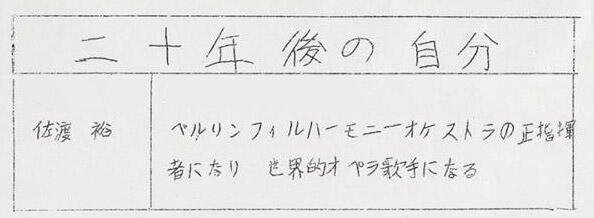 二十年後の自分
佐渡 裕
ベルリンフィルハーモニーオケストラの正指揮
者になり 世界的オペラ歌手になる